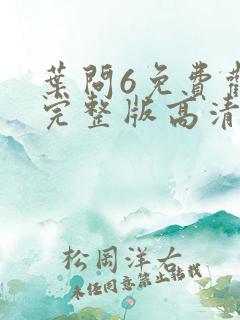 葉問6免費觀
完整版高清
松岡洋右
未经同意禁止转载